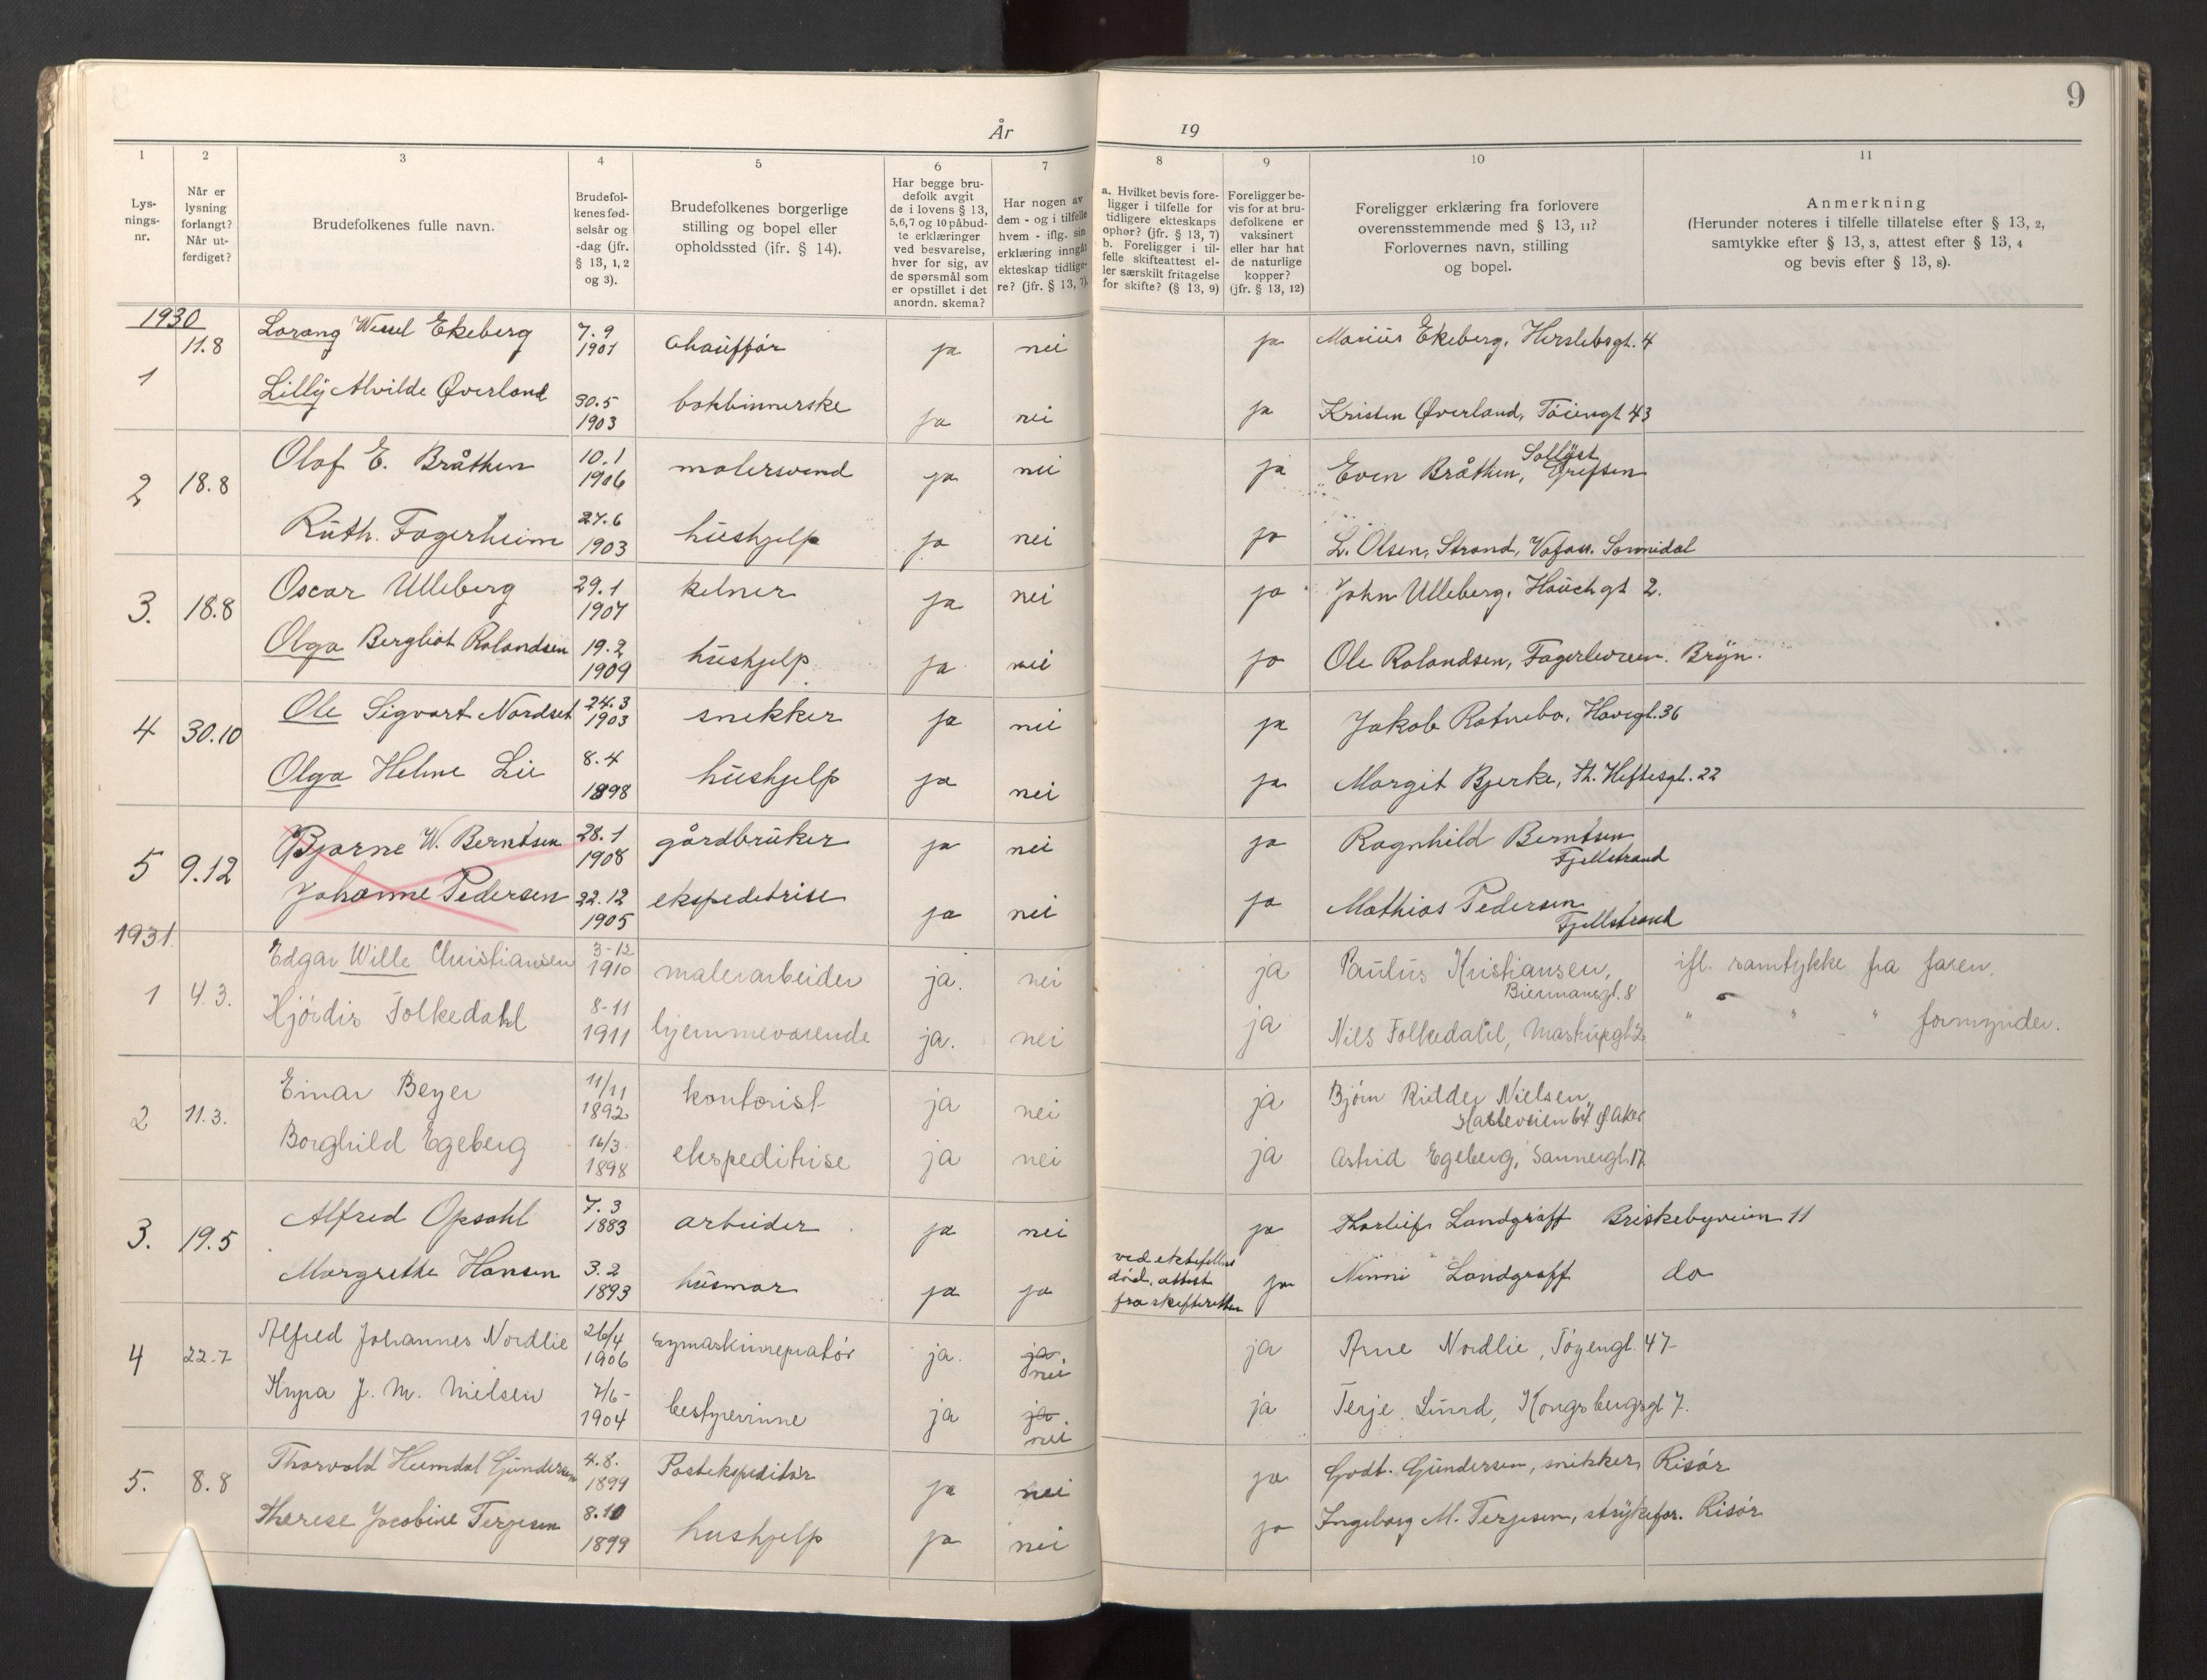 9
År 19
1 2 3 4 5 6 7 8 9 10 11
Lys-
nings-
nr.
Når er
lysning
forlangt?
Når ut-
ferdiget?
Brudefolkenes fulle navn.
Brudefol-
kenes fød-
selsår og
-dag (jfr.
§ 13, 1, 2
og 3).
Brudefolkenes borgerlige
stilling og bopel eller
opholdssted (jfr. § 14).
Har begge bru-
defolk avgit
de i lovens § 13,
5,6,7 og 10 påbud-
te erklæringer
ved besvarelse,
hver for sig, av
de spørsmål som
er opstillet i det
anordn. skema?
Har nogen av
dem - og i tilfelle
hvem - iflg. sin
erklæring inngåt
ekteskap tidlige-
re? (jfr. § 13, 7).
a. Hvilket bevis fore-
ligger i tilfelle for
tidligere ekteskaps
ophør? (jfr. § 13, 7)
b. Foreligger i til-
felle skifteattest el-
ler særskilt fritagelse
for skifte? (§ 13, 9)
Foreligger be-
vis for at bru-
defolkene er
vaksinert
eller har hat
de naturlige
kopper?
(jfr. § 13, 12)
Foreligger erklæring fra forlovere
overensstemmende med § 13, 11?
Forlovernes navn, stilling
og bopel.
Anmerkning
(Herunder noteres i tilfelle tillatelse efter § 13, 2,
samtykke efter § 13, 3, attest efter § 13, 4
og bevis efter § 13, 8).
1930
1 11.8 Lorang Wessel Ekeberg 7.9 1901 chauffør ja nei ja Marius Ekeberg, Herslebsgt. 4
Lilly Alvilde Øverland 30.5 1903 bokbinnerske ja nei ja Kristen Øverland, Tøiengt 43
2 18.8 Olaf E. Bråthen 10.1 1906 malersvend ja nei ja Even Bråthen, Solløst Grefsen
Ruth. Fagerheim 27.6 1903 hushjelp ja nei ja L. Olsen, Strand, Sannidal
3. 18.8 Oscar Ulleberg 29.1 1907 kelner ja nei ja John Ulleberg, Hauchgt 2.
Olga Bergliot Rolandsen 19.2 1909 hushjelp ja nei ja Ole Rolandsen, Bryn.
4 30.10 Ole Sigvart Nordset 24.3 1903 snekker ja nei ja Jakob Rotnebo, Havegt. 36
Olga Helene Lie 8.4 1898 hushjelp ja nei ja Margit Bjerke, Th. Heftesgt. 22
5 9.12 Bjarne W. Berntsen 28.1 1908 gårdbruker ja nei ja Ragnhild Berntsen
Fjellstrand
Johanne Pedersen 22.12 1905 ekspeditrise ja nei ja Mathias Pedersen
Fjellstrand
1931
1 4.3. Edgar Wille Christiansen 3-12 1910 malerarbeider ja. nei ja Paulus Kristiansen, ifl. samtykke fra faren.
Biermannsgt. 8
Hjördis Folkedahl 8-11 1911 hjemmeværende ja. nei ja Nils Folkedahl, " " " formynder.
2 11.3. Einar Beyer 11/11 1892 kontorist ja nei ja Bjørn Ridder Nielsen,
64 Ø. Aker
Borghild Egeberg 16/3 1898 ekspeditrise ja nei ja Astrid Egeberg, Sannergt. 17
3. 19.5 Alfred Opsahl 7.3 1883 arbeider ja nei ja Thorleif Landgraff Briskebyveien 11
Margrethe Hansen 3.2 1893 husmor ja ja ved ektefellens
død, attest
fra skifteretten ja Ninni Landgraff do
4 22.7 Alfred Johannes Nordlie 26/4 1906 symaskinreparatør ja. ja nei ja Arne Nordlie, Tøyengt. 47
Kyra J. M. Nielsen 7/6- 1904 bestyrerinne ja ja nei ja Terje Lund, Kongsbergsgt 7.
5. 8.8 Thorvald Heimdal Gundersen 4.8. 1899 Postekspeditør ja nei ja Godt. Gundersen, snikker, Risør
Therese Jacobine Terjesen 8.10 1899 hushjelp ja nei ja Ingeborg M. Terjesen, strykefor. Risør